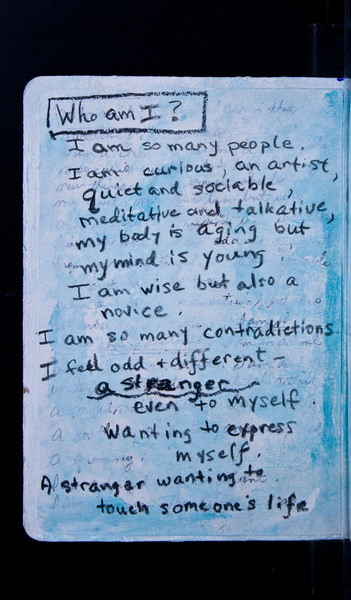 Who am I?
I am so many people.
I am curious, an artist,
quiet and sociable,
meditative and talkative,
my body is aging but
my mind is young
I am wise but also a
novice.
I am so many contradictions.
I feel odd + different -
a stranger
even to myself.
Wanting to express
myself.
A stranger wanting to
touch someone's life